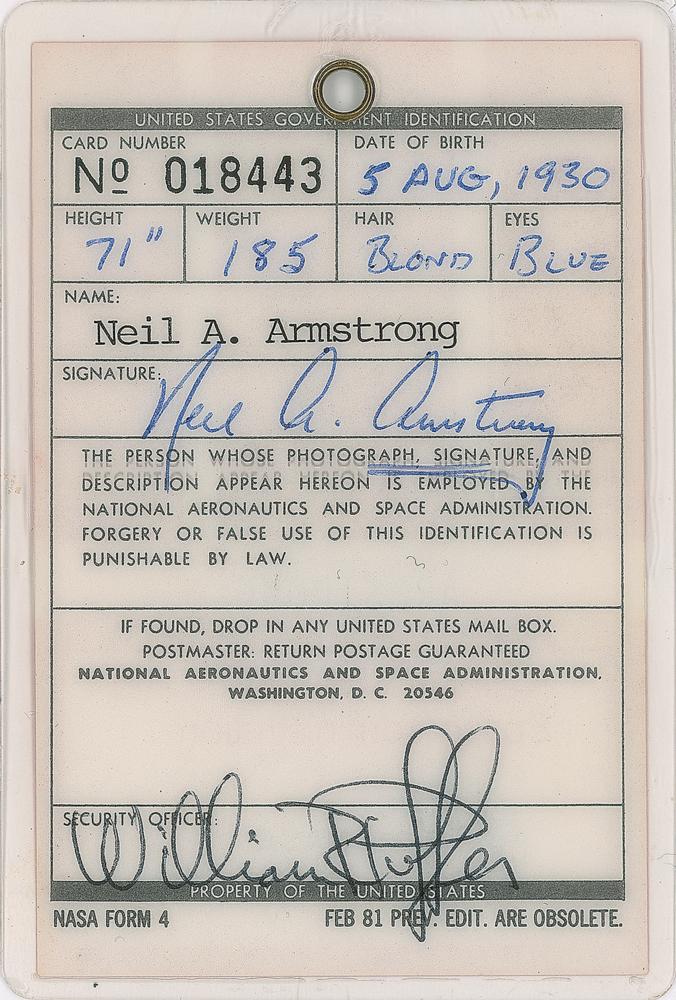 UNITED STATES GOVERNMENT IDENTIFICATION
CARD NUMBER DATE OF BIRTH
Nº 018443 5 AUG, 1930
HEIGHT WEIGHT HAIR EYES
71" 185 BLOND BLUE
NAME:
Neil A. Armstrong
SIGNATURE:
Neil A. Armstrong
THE PERSON WHOSE PHOTOGRAPH, SIGNATURE, AND
DESCRIPTION APPEAR HEREON IS EMPLOYED BY THE
NATIONAL AERONAUTICS AND SPACE ADMINISTRATION.
FORGERY OR FALSE USE OF THIS IDENTIFICATION IS
PUNISHABLE BY LAW.
IF FOUND, DROP IN ANY UNITED STATES MAIL BOX.
POSTMASTER: RETURN POSTAGE GUARANTEED
NATIONAL AERONAUTICS AND SPACE ADMINISTRATION,
WASHINGTON, D. C. 20546
SECURITY OFFICER:
William
PROPERTY OF THE UNITED STATES
NASA FORM 4 FEB 81 PREV. EDIT. ARE OBSOLETE.